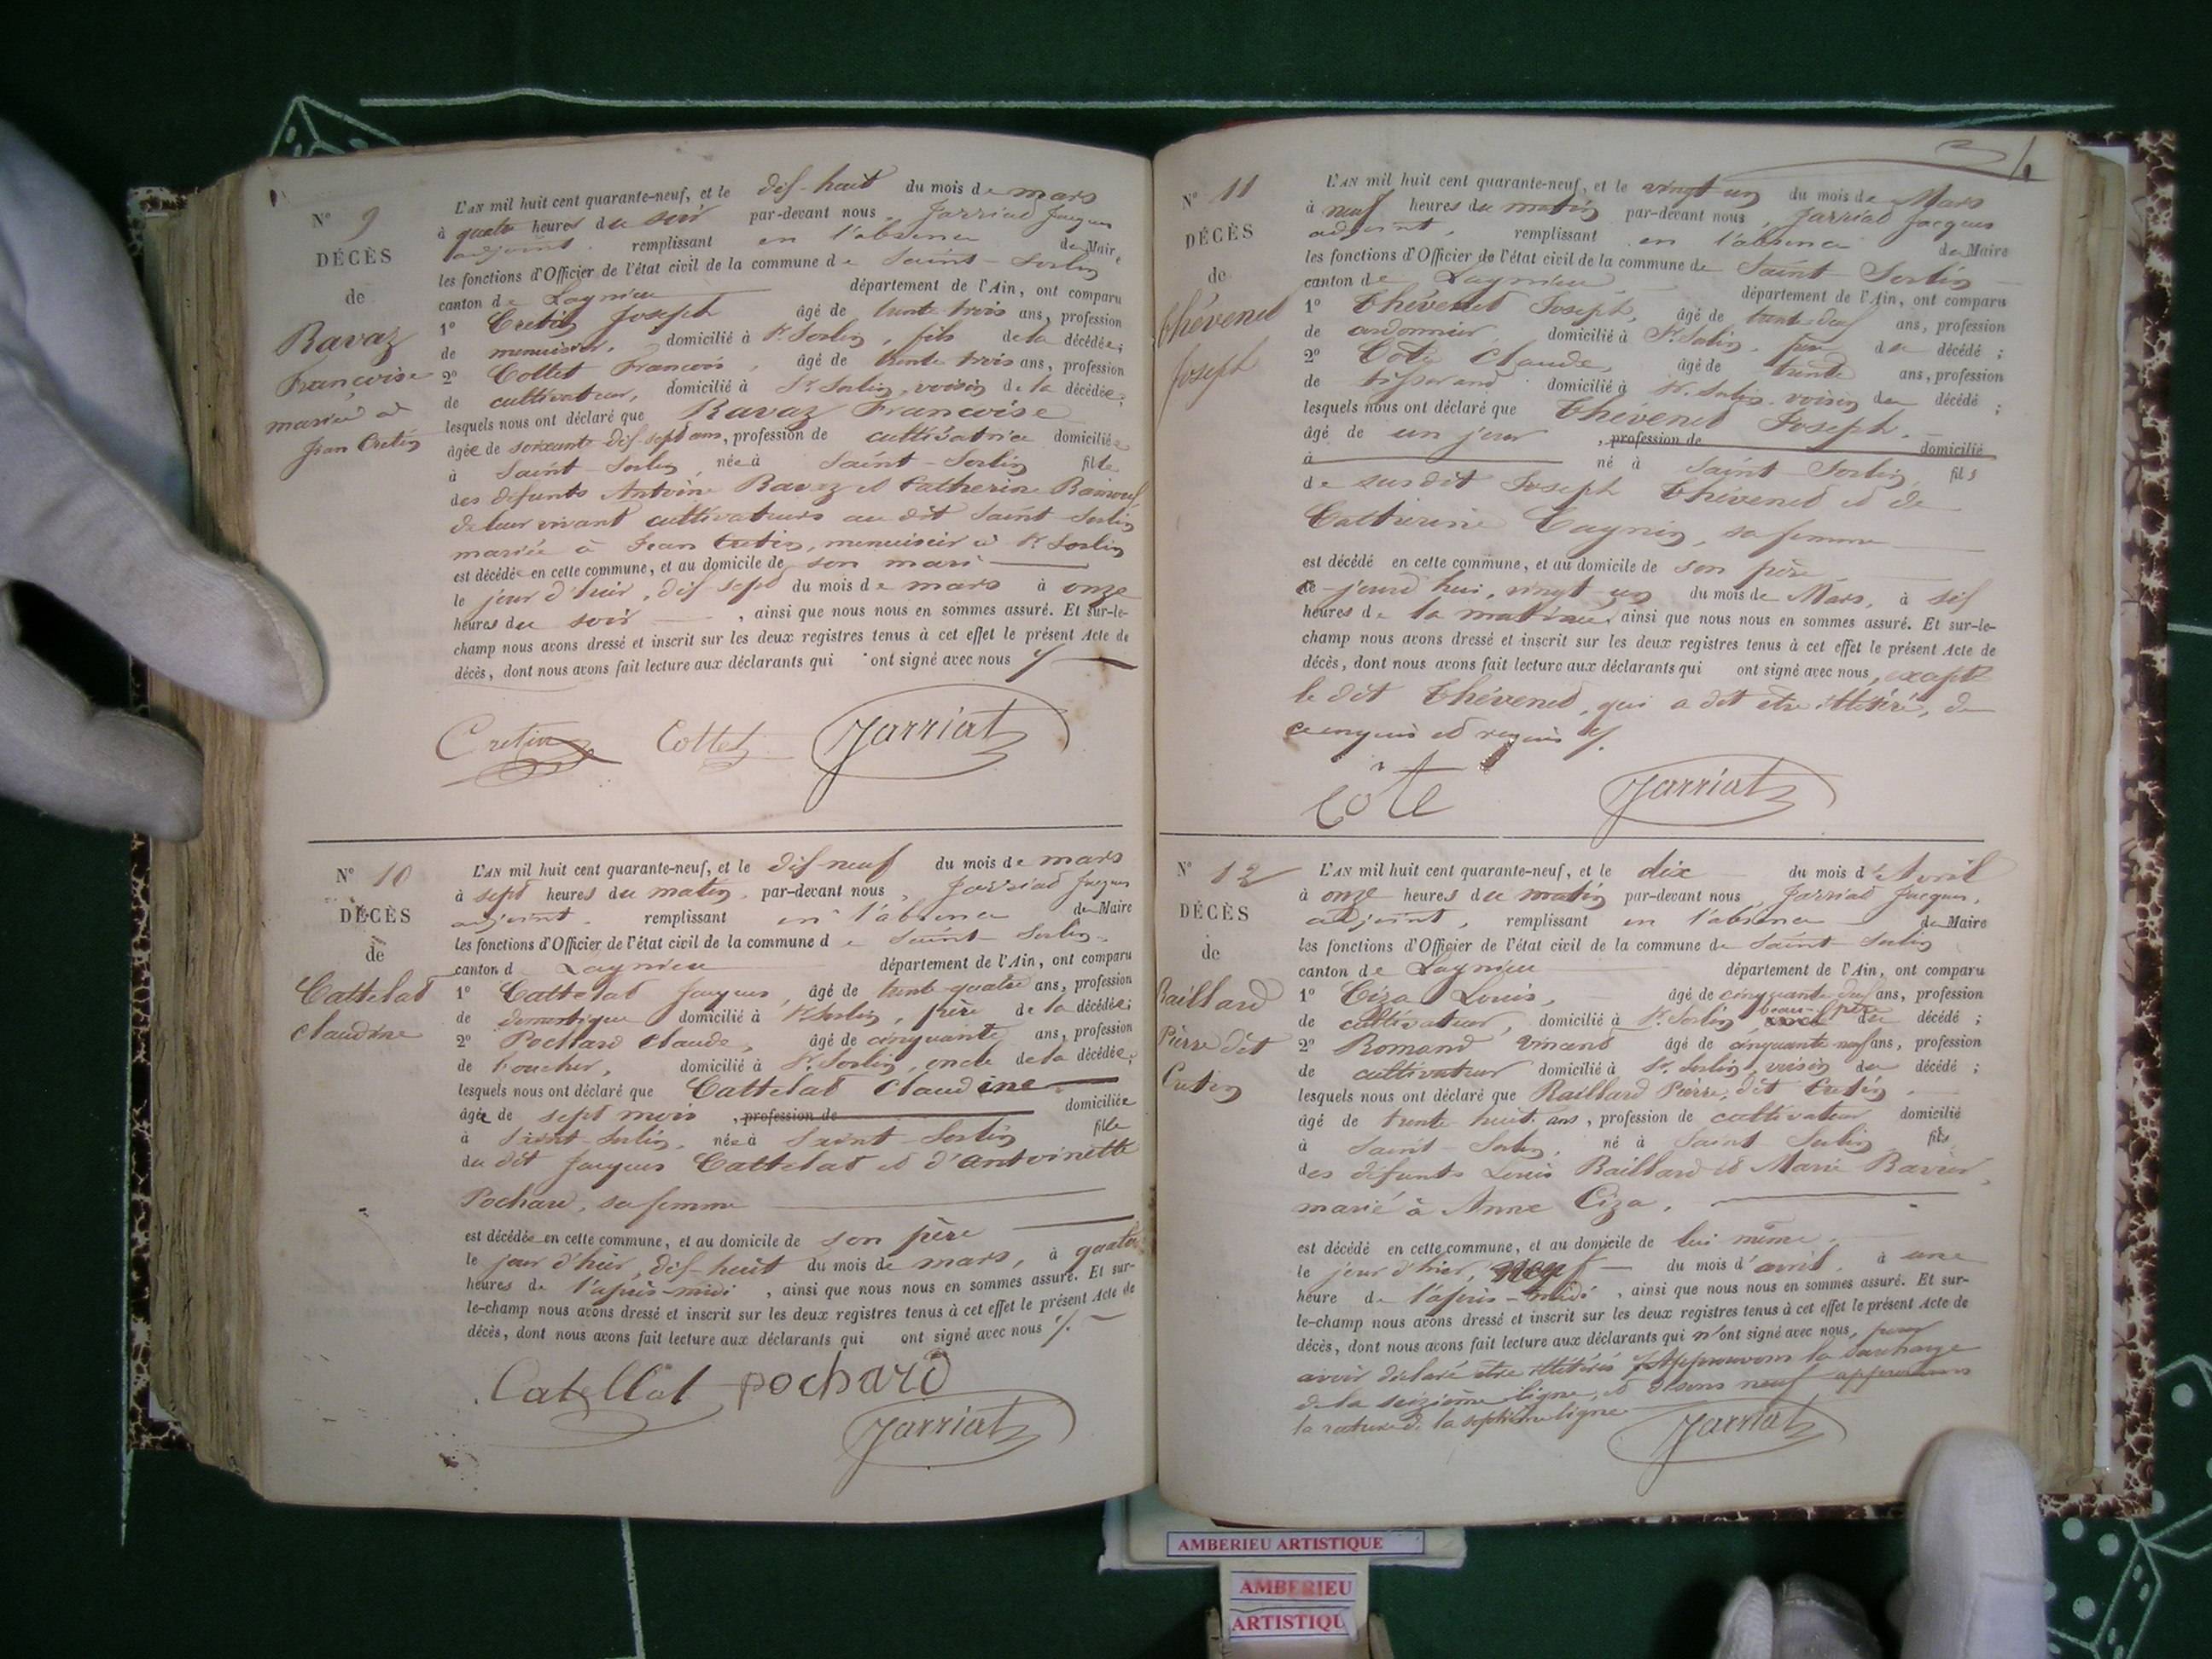 N° 9
DÉCÈS
de
Ravaz
Françoise
mariée à
Jean Cretin
L'AN mil huit cent quarante-neuf, et le dix-huit du mois de mars
à quatre heures du soir par-devant nous, Jarriat Jacques
adjoint. remplissant en l'absence du Maire
les fonctions d'Officier de l'état civil de la commune de Saint-Sorlin
canton de Lagnieu département de l'Ain, ont comparu
1° Cretin Joseph âgé de trente trois ans, profession
de menuisier, domicilié à St Sorlin, fils de la décédée;
2° Collet François, âgé de trente trois ans, profession
de cultivateur, domicilié à St Sorlin, voisin de la décédée;
lesquels nous ont déclaré que Ravaz Françoise
âgée de soixante dix sept ans, profession de cultivatrice domiciliée
à Saint-Sorlin, née à Saint-Sorlin fille
des défunts Antoine Ravaz et Catherine
de leur vivant cultivateurs au dit Saint-Sorlin
mariée à Jean Cretin, menuisier à St Sorlin
est décédée en cette commune, et au domicile de son mari
le jour d'hier, dix sept du mois de mars à onze
heures du soir, ainsi que nous nous en sommes assuré. Et sur-le-
champ nous avons dressé et inscrit sur les deux registres tenus à cet effet le présent Acte de
décès, dont nous avons fait lecture aux déclarants qui ont signé avec nous
Cretin Collet Jarriat
N° 10
DÉCÈS
de
Cattelat
Claudine
L'AN mil huit cent quarante-neuf, et le dix-neuf du mois de mars
à sept heures du matin, par-devant nous, Jarriat Jacques
adjoint. remplissant en l'absence du Maire
les fonctions d'Officier de l'état civil de la commune de Saint-Sorlin,
canton d Lagnieu département de l'Ain, ont comparu
1° Cattelat Jacques, âgé de trente quatre ans, profession
de domestique domicilié à St Sorlin, père de la décédée;
2° Pochard Claude, âgé de cinquante ans, profession
de boucher, domicilié à St Sorlin, oncle de la décédée;
lesquels nous ont déclaré que Cattelat Claudine
âgée de sept mois, profession de domiciliée
à Saint-Sorlin, née à Saint-Sorlin fille
du dit Jacques Cattelat et d'Antoinette
Pochard, sa femme
est décédée en cette commune, et au domicile de son père
le jour d'hier, dix-huit du mois de mars, à quatre
heures de l'après-midi, ainsi que nous nous en sommes assuré. Et sur-
le-champ nous avons dressé et inscrit sur les deux registres tenus à cet effet le présent Acte de
décès, dont nous avons fait lecture aux déclarants qui ont signé avec nous
Catellat pochard
Jarriat
N° 11
DÉCÈS
de
Thévenet
Joseph
L'AN mil huit cent quarante-neuf, et le vingt un du mois de Mars
à neuf heures du matin par-devant nous, Jarriat Jacques
adjoint, remplissant en l'absence du Maire
les fonctions d'Officier de l'état civil de la commune de Saint-Sorlin
canton de Lagnieu département de l'Ain, ont comparu
1° Thévenet Joseph, âgé de trente deux ans, profession
de cordonnier, domicilié à St Sorlin, père du décédé;
2° Côte Claude, âgé de trente ans, profession
de tisserand domicilié à St Sorlin, voisin du décédé;
lesquels nous ont déclaré que Thévenet Joseph.
âgé de un jour, profession de domicilié
à né à Saint Sorlin fils
de susdit Joseph Thévenet et de
Catherine Cagnin, sa femme
est décédé en cette commune, et au domicile de son père
ce jourd'hui, vingt un du mois de Mars, à six
heures de la matinée, ainsi que nous nous en sommes assuré. Et sur-le-
champ nous avons dressé et inscrit sur les deux registres tenus à cet effet le présent Acte de
décès, dont nous avons fait lecture aux déclarants qui ont signé avec nous, excepté
le dit Thévenet, qui a dit être illétéré, de
ce enquis et requis
Côte Jarriat
N° 12
DÉCÈS
de
Raillard
Pierre dit
Cretin
L'AN mil huit cent quarante-neuf, et le dix du mois d'Avril
à onze heures du matin par-devant nous Jarriat Jacques,
adjoint, remplissant en l'absence du Maire
les fonctions d'Officier de l'état civil de la commune de Saint-Sorlin
canton de Lagnieu département de l'Ain, ont comparu
1° Ciza Louis, âgé de cinquante deux ans, profession
de cultivateur, domicilié à St Sorlin beau-père du décédé;
2° Romand Vincent âgé de cinquante neuf ans, profession
de cultivateur domicilié à St Sorlin, voisin du décédé;
lesquels nous ont déclaré que Raillard Pierre, dit Cretin
âgé de trente huit ans, profession de cultivateur domicilié
à Saint-Sorlin, né à Saint Sorlin fils
des défunts Louis Raillard et Marie Ravier,
marié à Anne Ciza,
est décédé en cette commune, et au domicile de lui même,
le jour d'hier, neuf du mois d'avril, à une
heure de l'après-midi, ainsi que nous nous en sommes assuré. Et sur-
le-champ nous avons dressé et inscrit sur les deux registres tenus à cet effet le présent Acte de
décès, dont nous avons fait lecture aux déclarants qui n'ont signé avec nous, pour
avoir déclaré être illétérés Approuvons la surcharge
de la seizième ligne, et disons neuf approuvons
la rature de la septième ligne
Jarriat
AMBERIEU ARTISTIQUE
AMBERIEU
ARTISTIQU